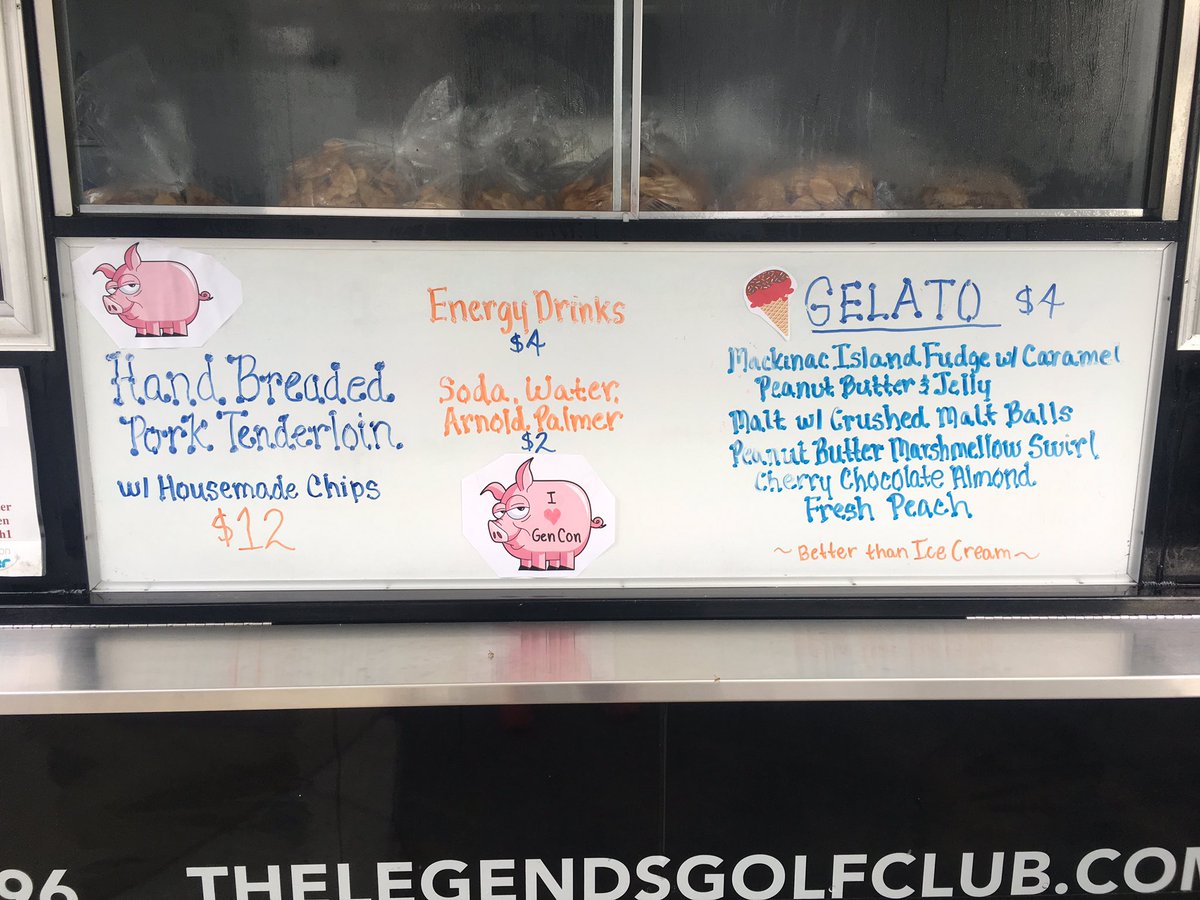 Hand Breaded
Pork Tenderloin
w/ Housemade Chips
$12
Energy Drinks
$4
Soda, Water,
Arnold Palmer
$2
I
GenCon
GELATO $4
Mackinac Island Fudge w/ Caramel
Peanut Butter & Jelly
Malt w/ Crushed Malt Balls
Peanut Butter Marshmellow Swirl
Cherry Chocolate Almond
Fresh Peach
~Better than Ice Cream~
96
THELEGENDSGOLFCLUB.COM